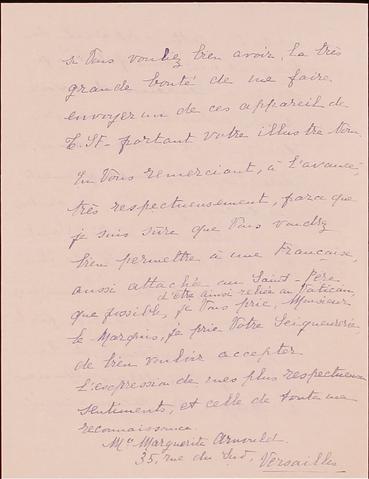 si Vous vouliez bien avoir, la très
grande bonté de me faire
envoyer un de ces appareil de
T.Sf. portant votre illustre Nom.
En Vous remerciant, à l'avance,
très respectueusement, parce que
je suis sûre que Vous voudrez
bien permettre à une Française,
aussi attachée au Saint-Père
d'être ainsi reliée au Vatican,
que possible, je Vous prie, Monsieur
le Marquis, je prie Votre Seigneurie,
de bien vouloir accepter
l'expression de mes plus respectueux
sentiments, et celle de toute ma
reconnaissance.
Marguerite Arnould.
35, rue du Sud, Versailles